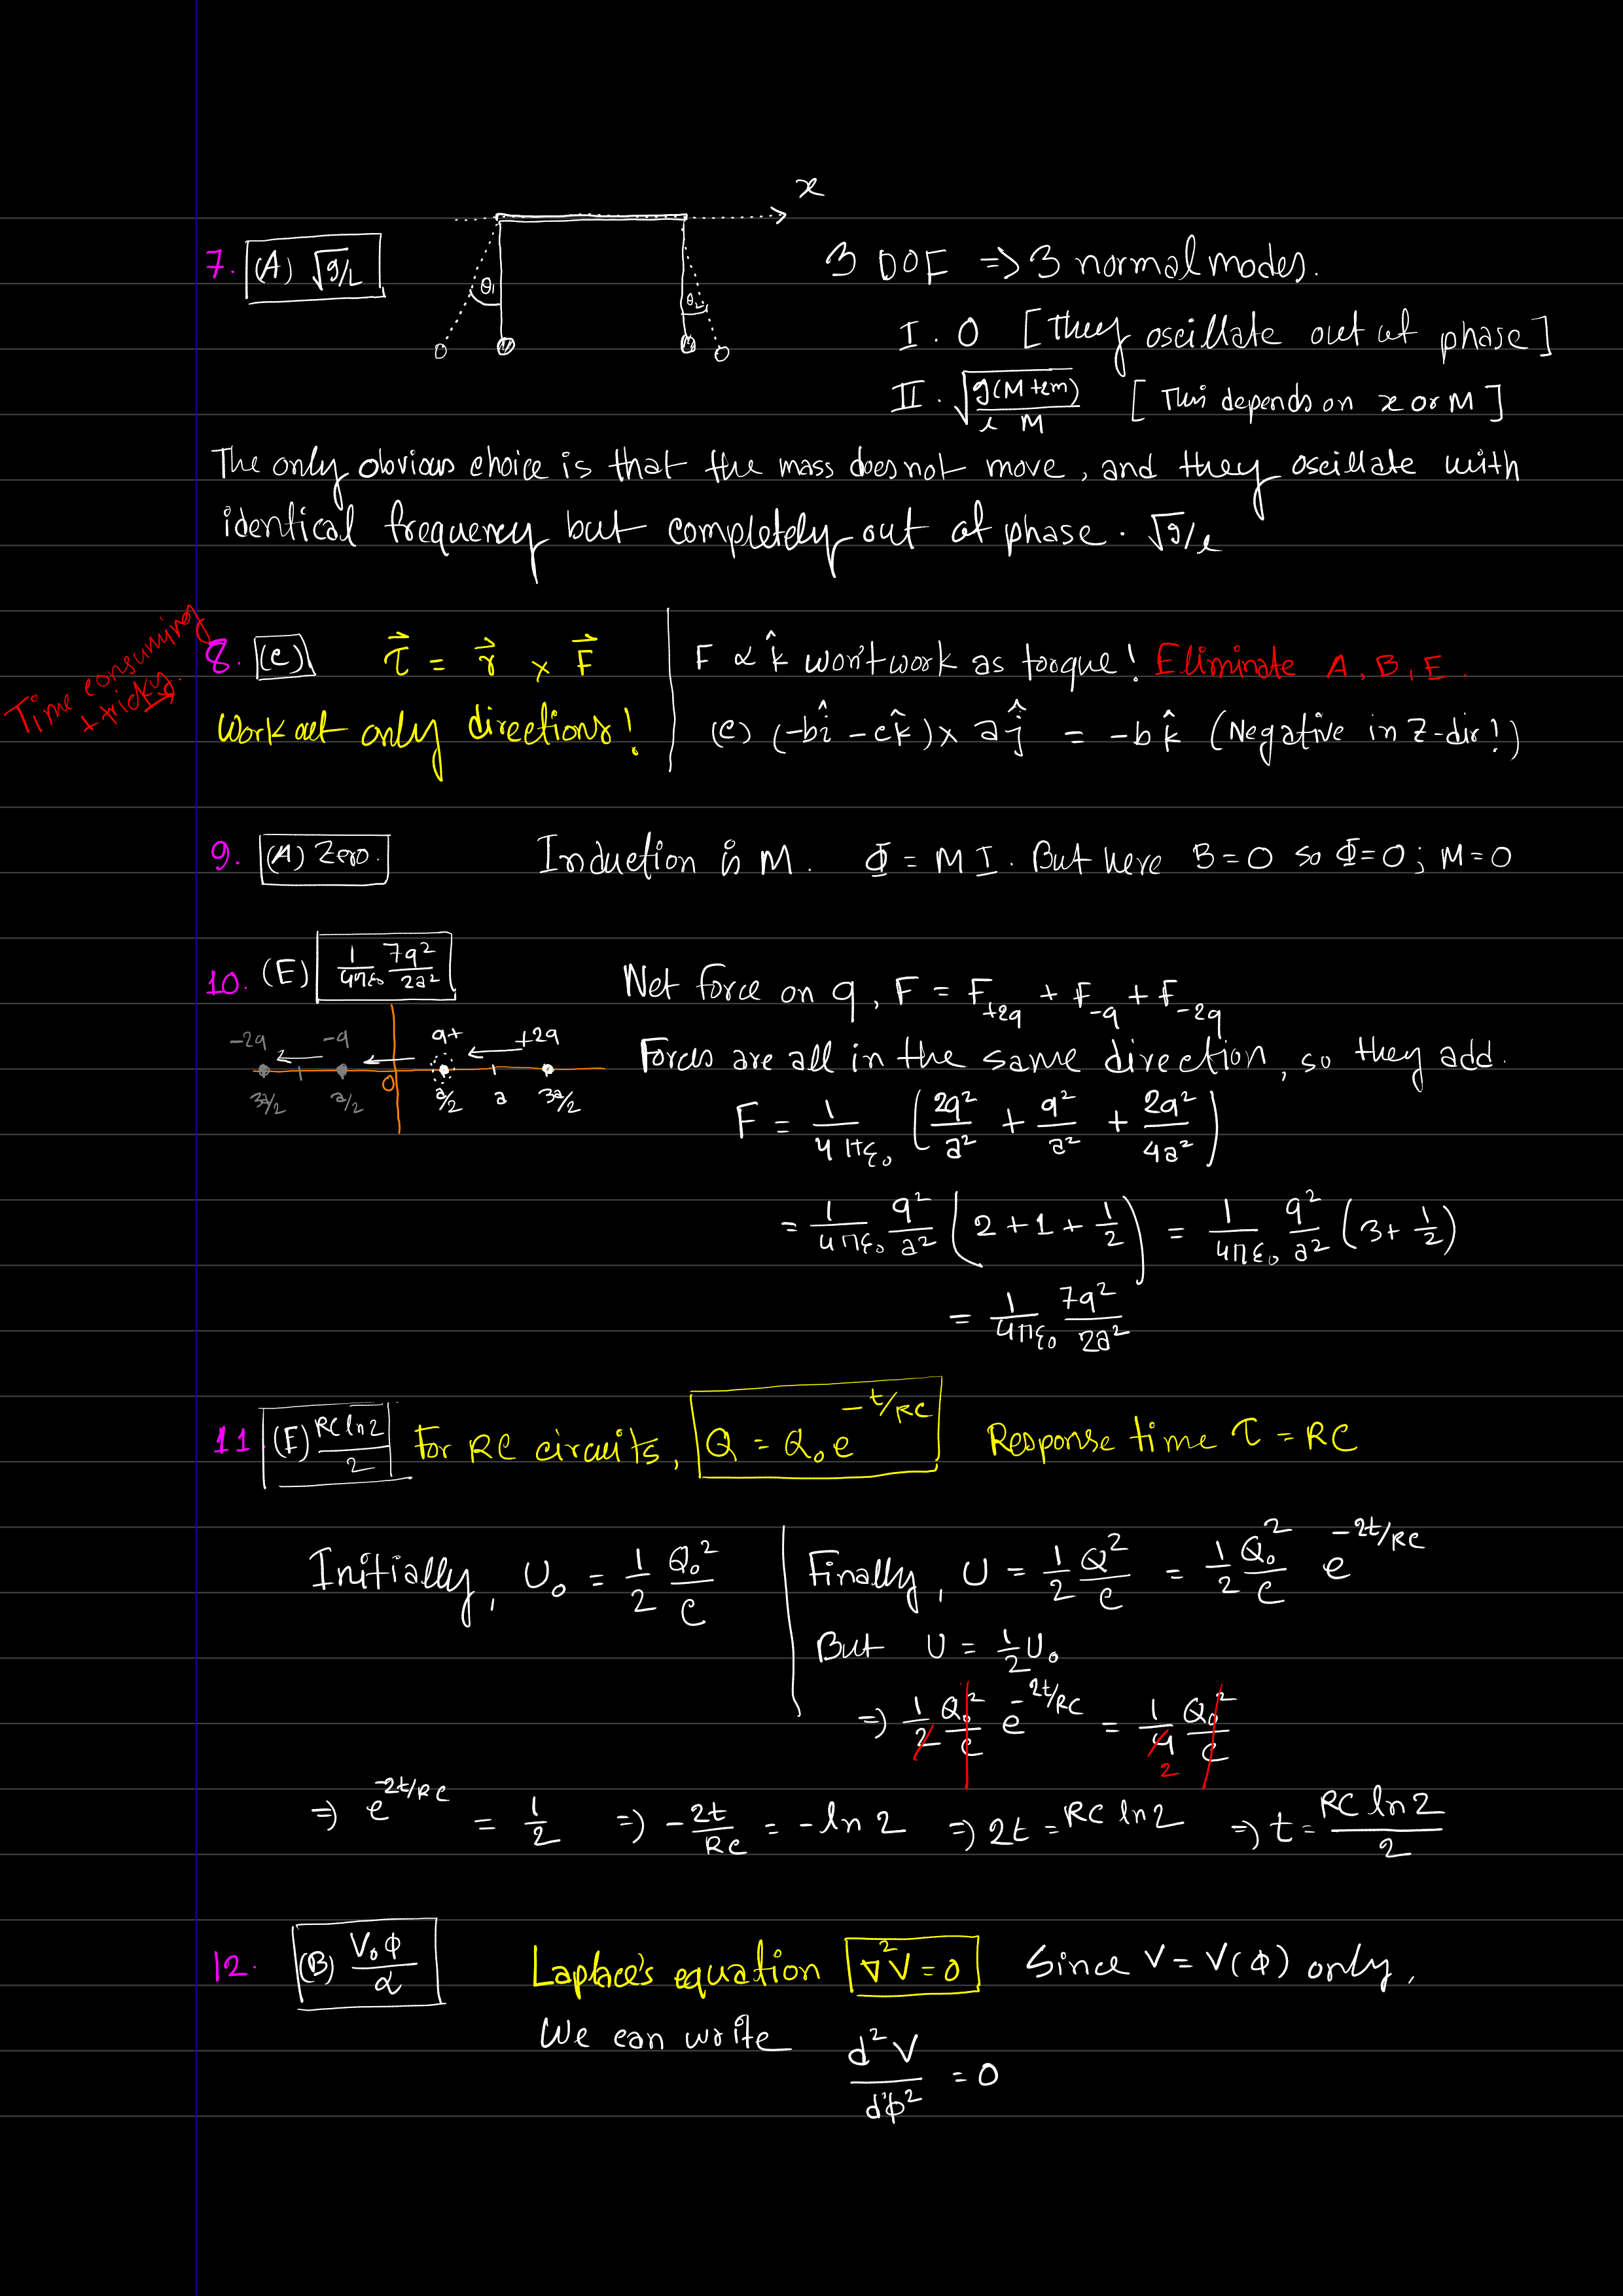 x
7. (A) √g/L
θ₁ θ₂
3 DOF => 3 normal modes.
I. 0 [They oscillate out of phase]
II. √(g(M+2m)/(l M)) [This depends on x or M]
The only obvious choice is that the mass does not move, and they oscillate with
identical frequency but completely out of phase. √g/l
Time consuming + tricky.
8. (C) τ⃗ = r⃗ × F⃗
Work out only directions!
F ∝ k̂ won't work as torque! Eliminate A, B, E.
(C) (-bî - ck̂) × aĵ = -b k̂ (Negative in Z-dir!)
9. (A) Zero. Induction is M. Φ = M I. But here B = 0 so Φ = 0; M = 0
10. (E) 1/4πε₀ 7q²/2a²
Net force on q, F = F₊₂q + F₋q + F₋₂q
-2q -q q+ +2q
3a/2 a/2 0 a/2 a 3a/2
Forces are all in the same direction, so they add.
F = 1/4πε₀ (2q²/a² + q²/a² + 2q²/4a²)
= 1/4πε₀ q²/a² (2 + 1 + 1/2) = 1/4πε₀ q²/a² (3 + 1/2)
= 1/4πε₀ 7q²/2a²
11 (E) RC ln2/2 For RC circuits, Q = Q₀e^(-t/RC) Response time τ = RC
Initially, U₀ = 1/2 Q₀²/C
Finally, U = 1/2 Q²/C = 1/2 Q₀²/C e^(-2t/RC)
But U = 1/2 U₀
⇒) 1/2 Q₀²/C e^(-2t/RC) = 1/4 Q₀²/C
2
⇒) e^(-2t/RC) = 1/2 ⇒) -2t/RC = -ln 2 ⇒) 2t = RC ln2 ⇒) t = RC ln2/2
12. (B) V₀φ/α Laplace's equation ∇²V = 0 Since V = V(φ) only,
We can write d²V/dφ² = 0